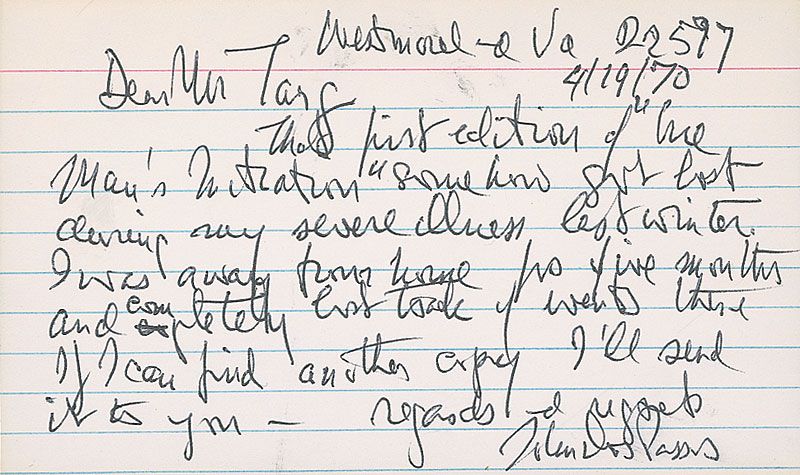 Westmoreland Va 22577
4/19/70
Dear Mr Targ
That first edition of "One
Man's Initiation" somehow got lost
during my severe illness last winter.
I was away from home for five months
and completely lost track of events there
If I can find another copy I'll send
it to you — regards and regrets
John Dos Passos